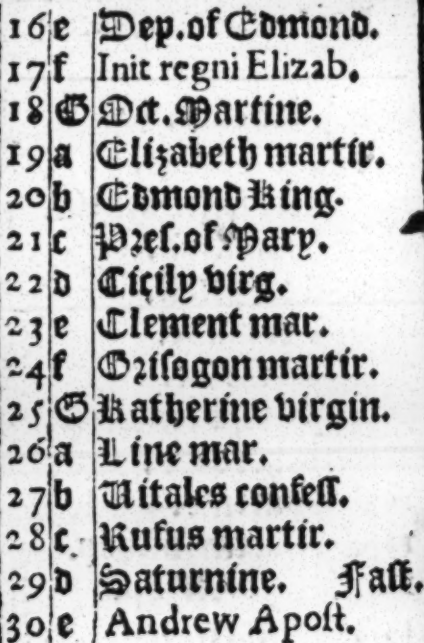 16 e Dep.of Edmond.
17 f Init regni Elizab.
18 G Oct.Martine.
19 a Elizabeth martir.
20 b Edmond King.
21 c Pres.of Mary.
22 d Cicily virg.
23 e Clement mar.
24 f Grisogon martir.
25 G Katherine virgin.
26 a Line mar.
27 b Vitales confess.
28 c Rufus martir.
29 d Saturnine. Fast.
30 e Andrew Apost.